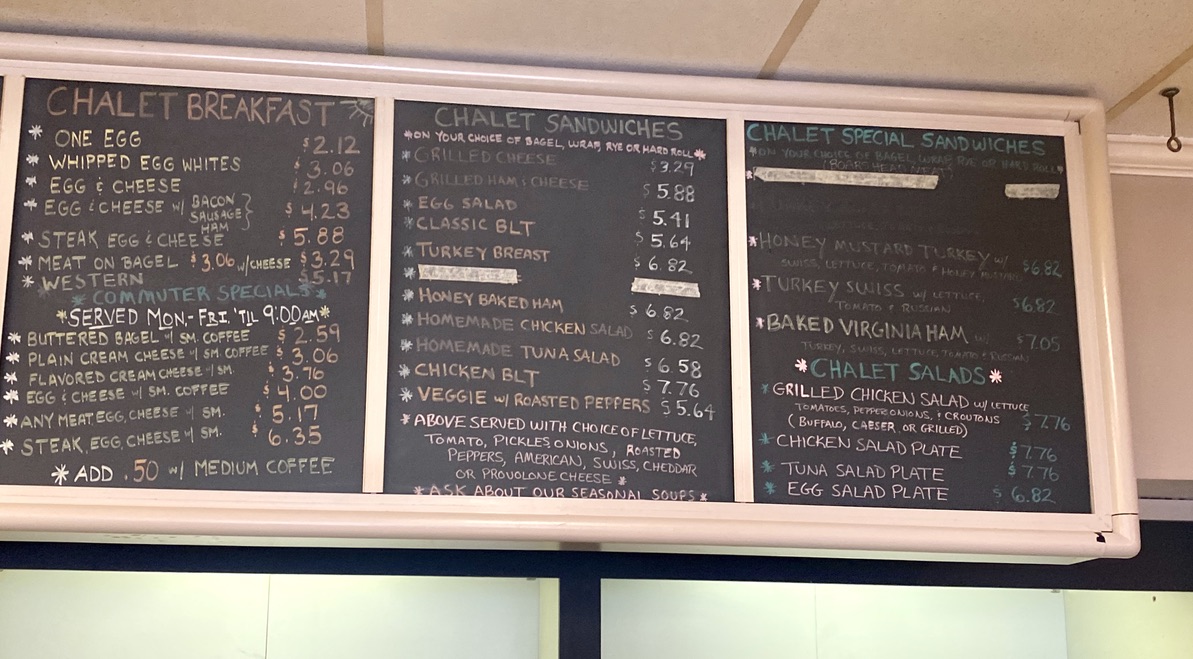 CHALET BREAKFAST
* ONE EGG $2.12
* WHIPPED EGG WHITES $3.06
* EGG & CHEESE $2.96
* EGG & CHEESE w/ BACON SAUSAGE HAM $4.23
* STEAK EGG & CHEESE $5.88
* MEAT ON BAGEL $3.06 w/CHEESE $3.29
* WESTERN $5.17
* COMMUTER SPECIALS *
*SERVED MON,- FRI, 'TIL 9:00AM*
* BUTTERED BAGEL w/ SM. COFFEE $2.59
* PLAIN CREAM CHEESE w/ SM COFFEE $3.06
* FLAVORED CREAM CHEESE w/ SM. $3.76
* EGG & CHEESE w/ SM. COFFEE $4.00
* ANY MEAT, EGG, CHEESE w/ SM. $5.17
* STEAK, EGG, CHEESE w/ SM. $6.35
* ADD .50 w/ MEDIUM COFFEE
CHALET SANDWICHES
*ON YOUR CHOICE OF BAGEL, WRAP, RYE OR HARD ROLL*
* GRILLED CHEESE $3.29
* GRILLED HAM & CHEESE $5.88
* EGG SALAD $5.41
* CLASSIC BLT $5.64
* TURKEY BREAST $6.82
*
* HONEY BAKED HAM $6.82
* HOMEMADE CHICKEN SALAD $6.82
* HOMEMADE TUNA SALAD $6.58
* CHICKEN BLT $7.76
* VEGGIE w/ ROASTED PEPPERS $5.64
* ABOVE SERVED WITH CHOICE OF LETTUCE,
TOMATO, PICKLES, ONIONS, ROASTED
PEPPERS, AMERICAN, SWISS, CHEDDAR
OR PROVOLONE CHEESE *
*ASK ABOUT OUR SEASONAL SOUPS*
CHALET SPECIAL SANDWICHES
*ON YOUR CHOICE OF BAGEL, WRAP, RYE OR HARD ROLL*
*
* HONEY MUSTARD TURKEY w/ $6.82
SWISS, LETTUCE, TOMATO & HONEY MUSTARD
* TURKEY SWISS w/ LETTUCE, $6.82
TOMATO & RUSSIAN
* BAKED VIRGINIA HAM w/ $7.05
TURKEY, SWISS, LETTUCE, TOMATO & RUSSIAN
* CHALET SALADS *
* GRILLED CHICKEN SALAD w/ LETTUCE
TOMATOES, PEPPER ONIONS, & CROUTONS $7.76
( BUFFALO, CAESER OR GRILLED)
* CHICKEN SALAD PLATE $7.76
* TUNA SALAD PLATE $7.76
* EGG SALAD PLATE $6.82